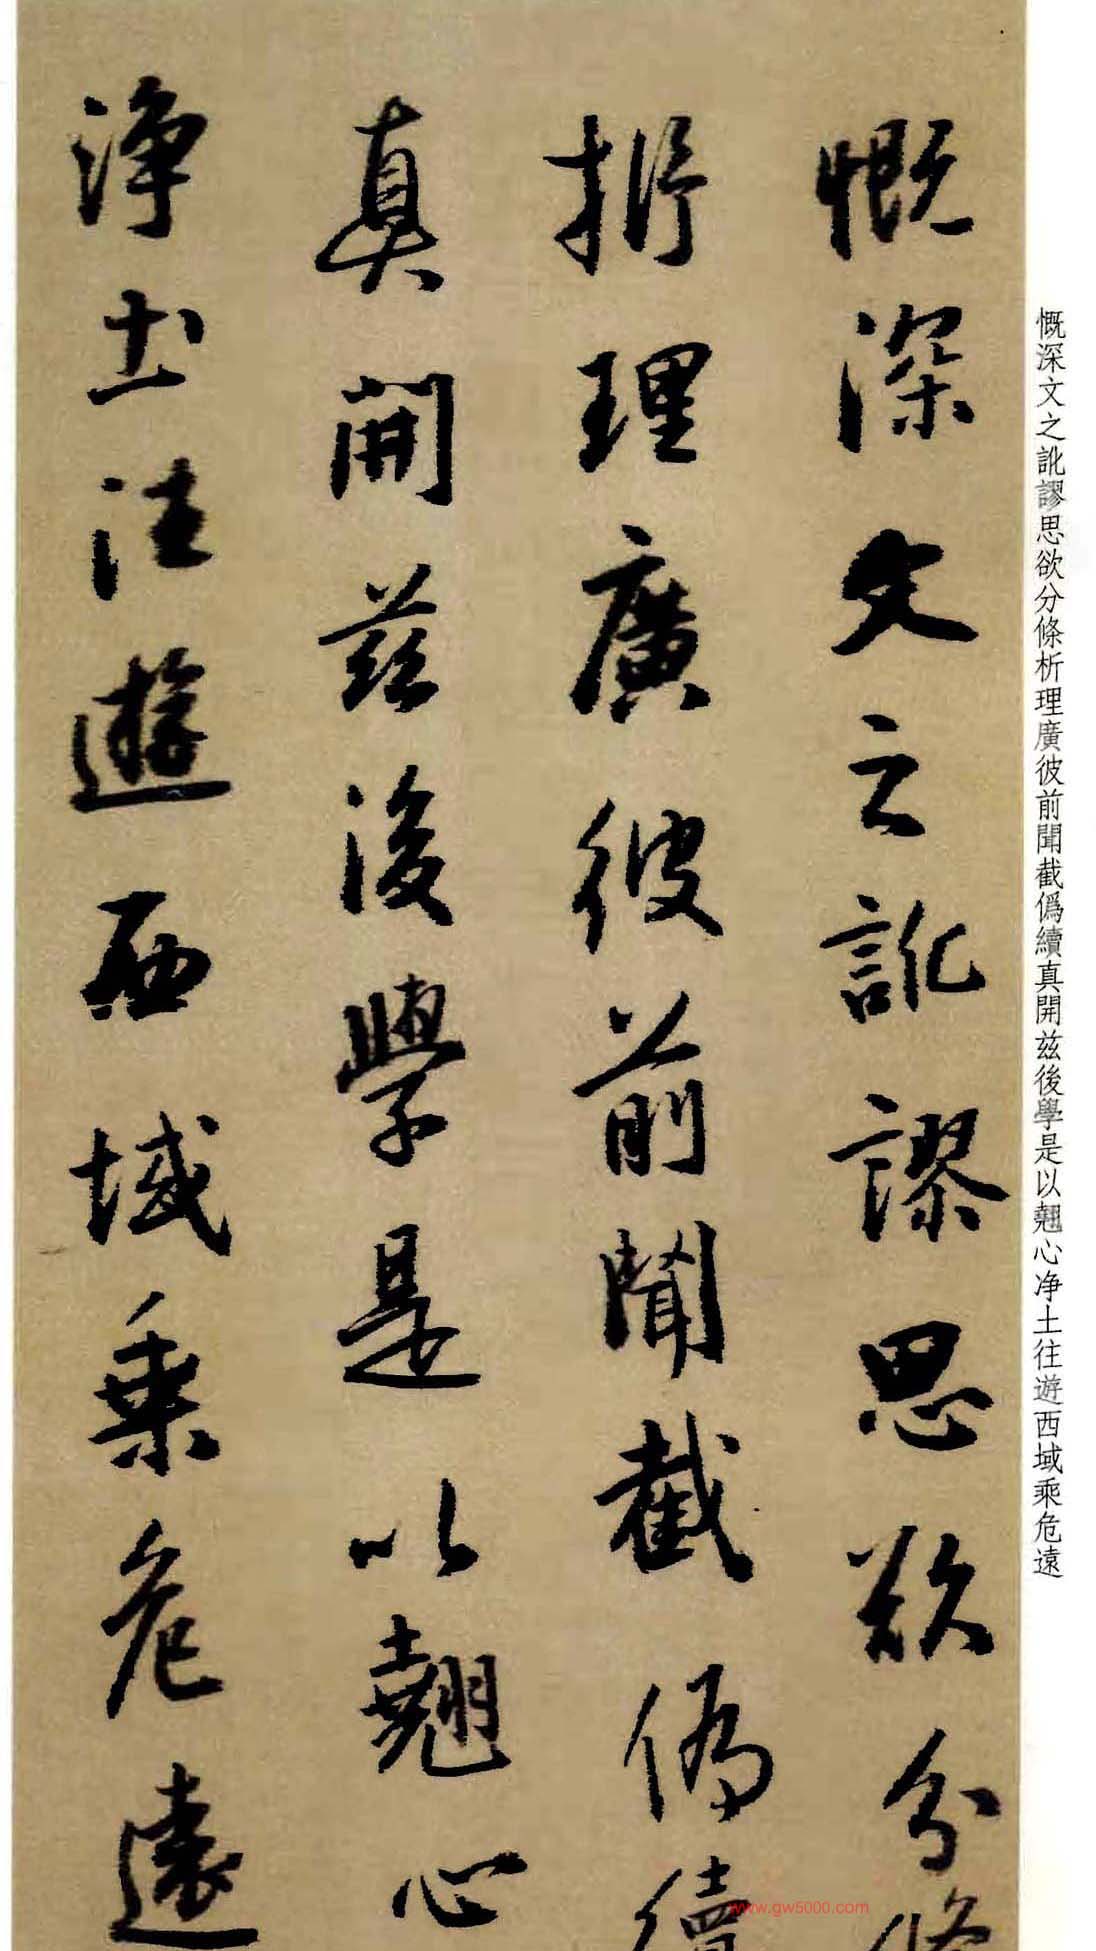 慨深文之訛謬思欲分條
析理廣彼前聞截僞續
真開兹後學是以翹心
淨土注遊西域乘危遠
慨深文之訛謬思欲分條析理廣彼前聞截僞續真開兹後學是以翹心净土往遊西域乘危遠
www.gw5000.com